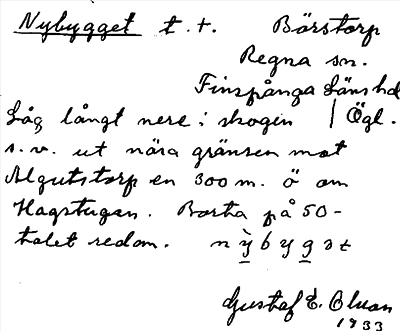 Nybygget t.t. Bärstorp
Regna sn.
Finspånga Länshd
Låg långt nere i skogen / Ögl.
s.v. ut nära gränsen mot
Algutstorp en 300 m. ö om
Hagstugan. Borta på 50-
talet redan. nỳbygət
Gustaf E. Olson
1933